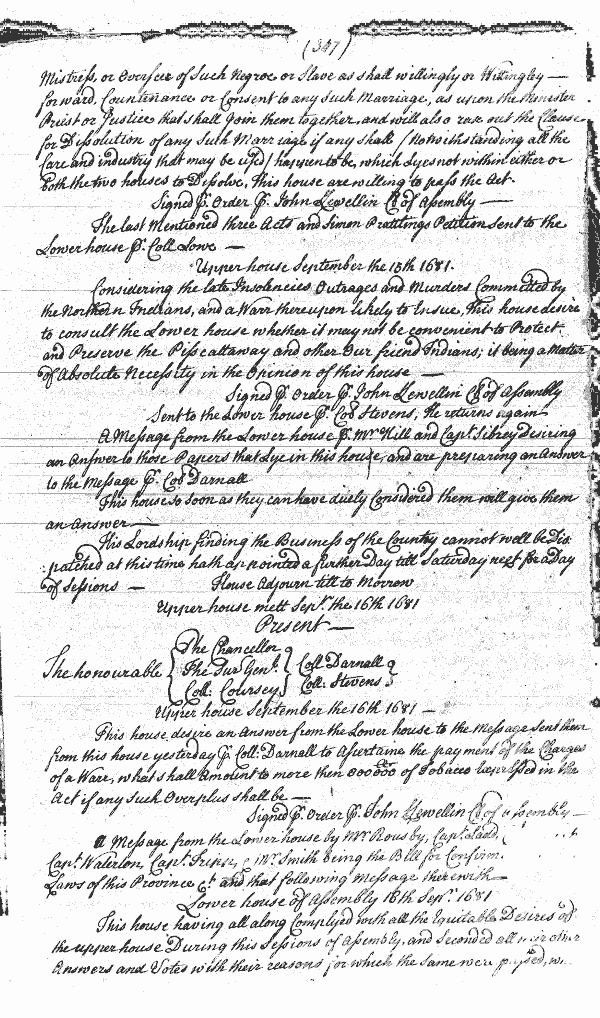 (347)
Mistress, or Overseer of Such Negroe or Slave as shall willingly or Wittingley —
forward, Countenance or Consent to any Such Marriage, as upon the Minister
Preist or Justice that shall Joyn them together, and will also raze out the Clause
for Dissolution of any Such Marriage if any shall (Notwithstanding all the
Care and industry that may be used) happen to be, which Lyes not within either or
both the two houses to Dissolve, This house are willing to pass the Act.
Signed ꝑ. Order ꝑ. John Lewellin Cl of Assembly —
The last Mentioned three Acts and Simon Petition sent to the
Lower house ꝑ. Coll Lowe —
Upper house September the 15th 1681.
Considering the late Insolencies Outrages and Murders Committed by
the Northern Indrans, and a Warr thereupon likely to Ensue, This house desire
to consult the Lower house whether it may not be convenient to Protect
and Preserve the Piscattaway and other Our friend Indians; it being a Matter
of Absolute Necessity in the Opinion of this house —
Signed ꝑ. Order ꝑ. John Lewellin Cl of Assembly
Sent to the Lower house ꝑ. Col Stevens, He returns again
A Message from the Lower house ꝑ. Mr. Hill and Capt. Sibrey Desiring
an Answer to those Papers that Lye in this house, and are preparing an Answer
to the Message ꝑ. Col Darnall
This house so soon as they can have duely Considered them will give them
an Answer —
His Lordship finding the Business of the Country cannot well be Dis
:patched at this time hath appointed a further Day till Saturday next for a Day
of Sessions — House Adjourn till to Morrow
Upper house mett Sepr. the 16th 1681
Present —
The honourable { The Chancellor
The Sur Genl. } Coll Darnall
Coll: Coursey Coll: Stevens }
Upper house September the 16th 1681 —
This house desire an Answer from the Lower to the Message sent them
from this house yesterday ꝑ. Coll: Darnall to Assertaine the payment of the Charges
of a Warr, what shall Amount to more then of Tobacco Expressed in the
Act if any Such Overplus shall be —
Signed ꝑ. Order ꝑ. John Lewellin Cl of Assembly —
A Message from the Lower house by Mr. Rousby, Capt. Ladd,
Capt. Waterlon, Capt. & Mr. Smith being the Bill for Confirm.
Laws of this Province &c. and that following Message therewith —
Lower house of Assembly 16th Sepr. 1681
This house having all along Complyed with all the Equitable Desires of
the upper house During this Sessions of Assembly, and Seconded all their other
Answers and Votes with their reasons for which the same were passed,